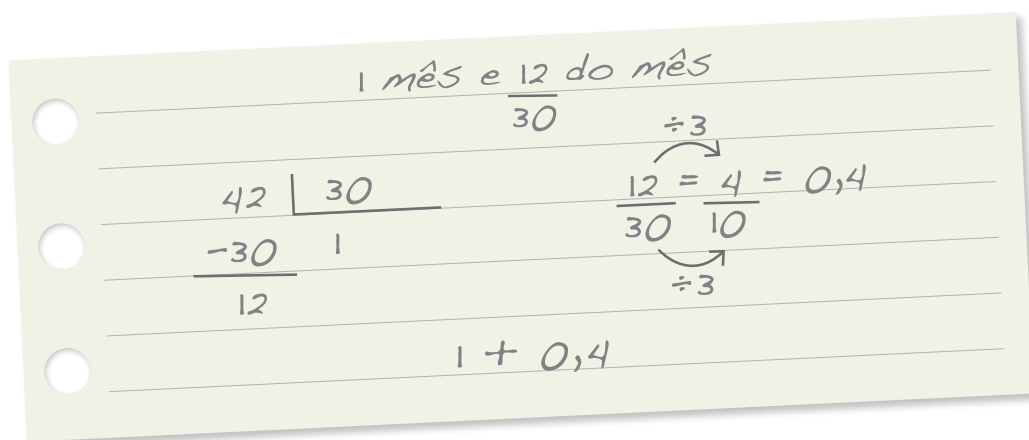 1 mês e 12/30 do mês
42 | 30
-30 1
12
÷3
12/30 = 4/10 = 0,4
÷3
1 + 0,4